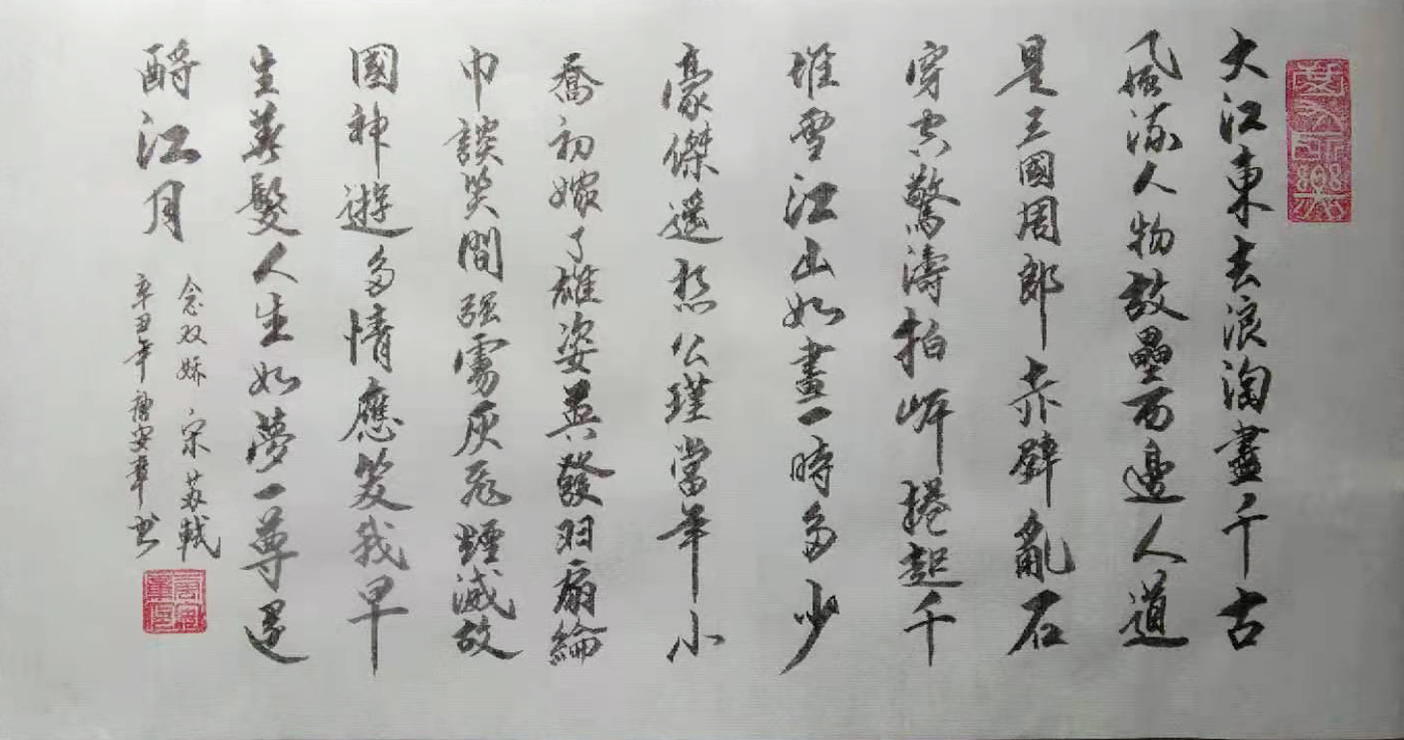 大江東去浪淘盡千古
風流人物故壘西邊人道
是三國周郎赤壁亂石
穿空驚濤拍岸捲起千
堆雪江山如畫一時多少
豪傑遙想公瑾當年小
喬初嫁了雄姿英發羽扇綸
巾談笑間强虜灰飛煙滅故
國神遊多情應笑我早
生華髮人生如夢一尊還
酹江月
念奴娇 宋 苏軾
辛丑年 安華书